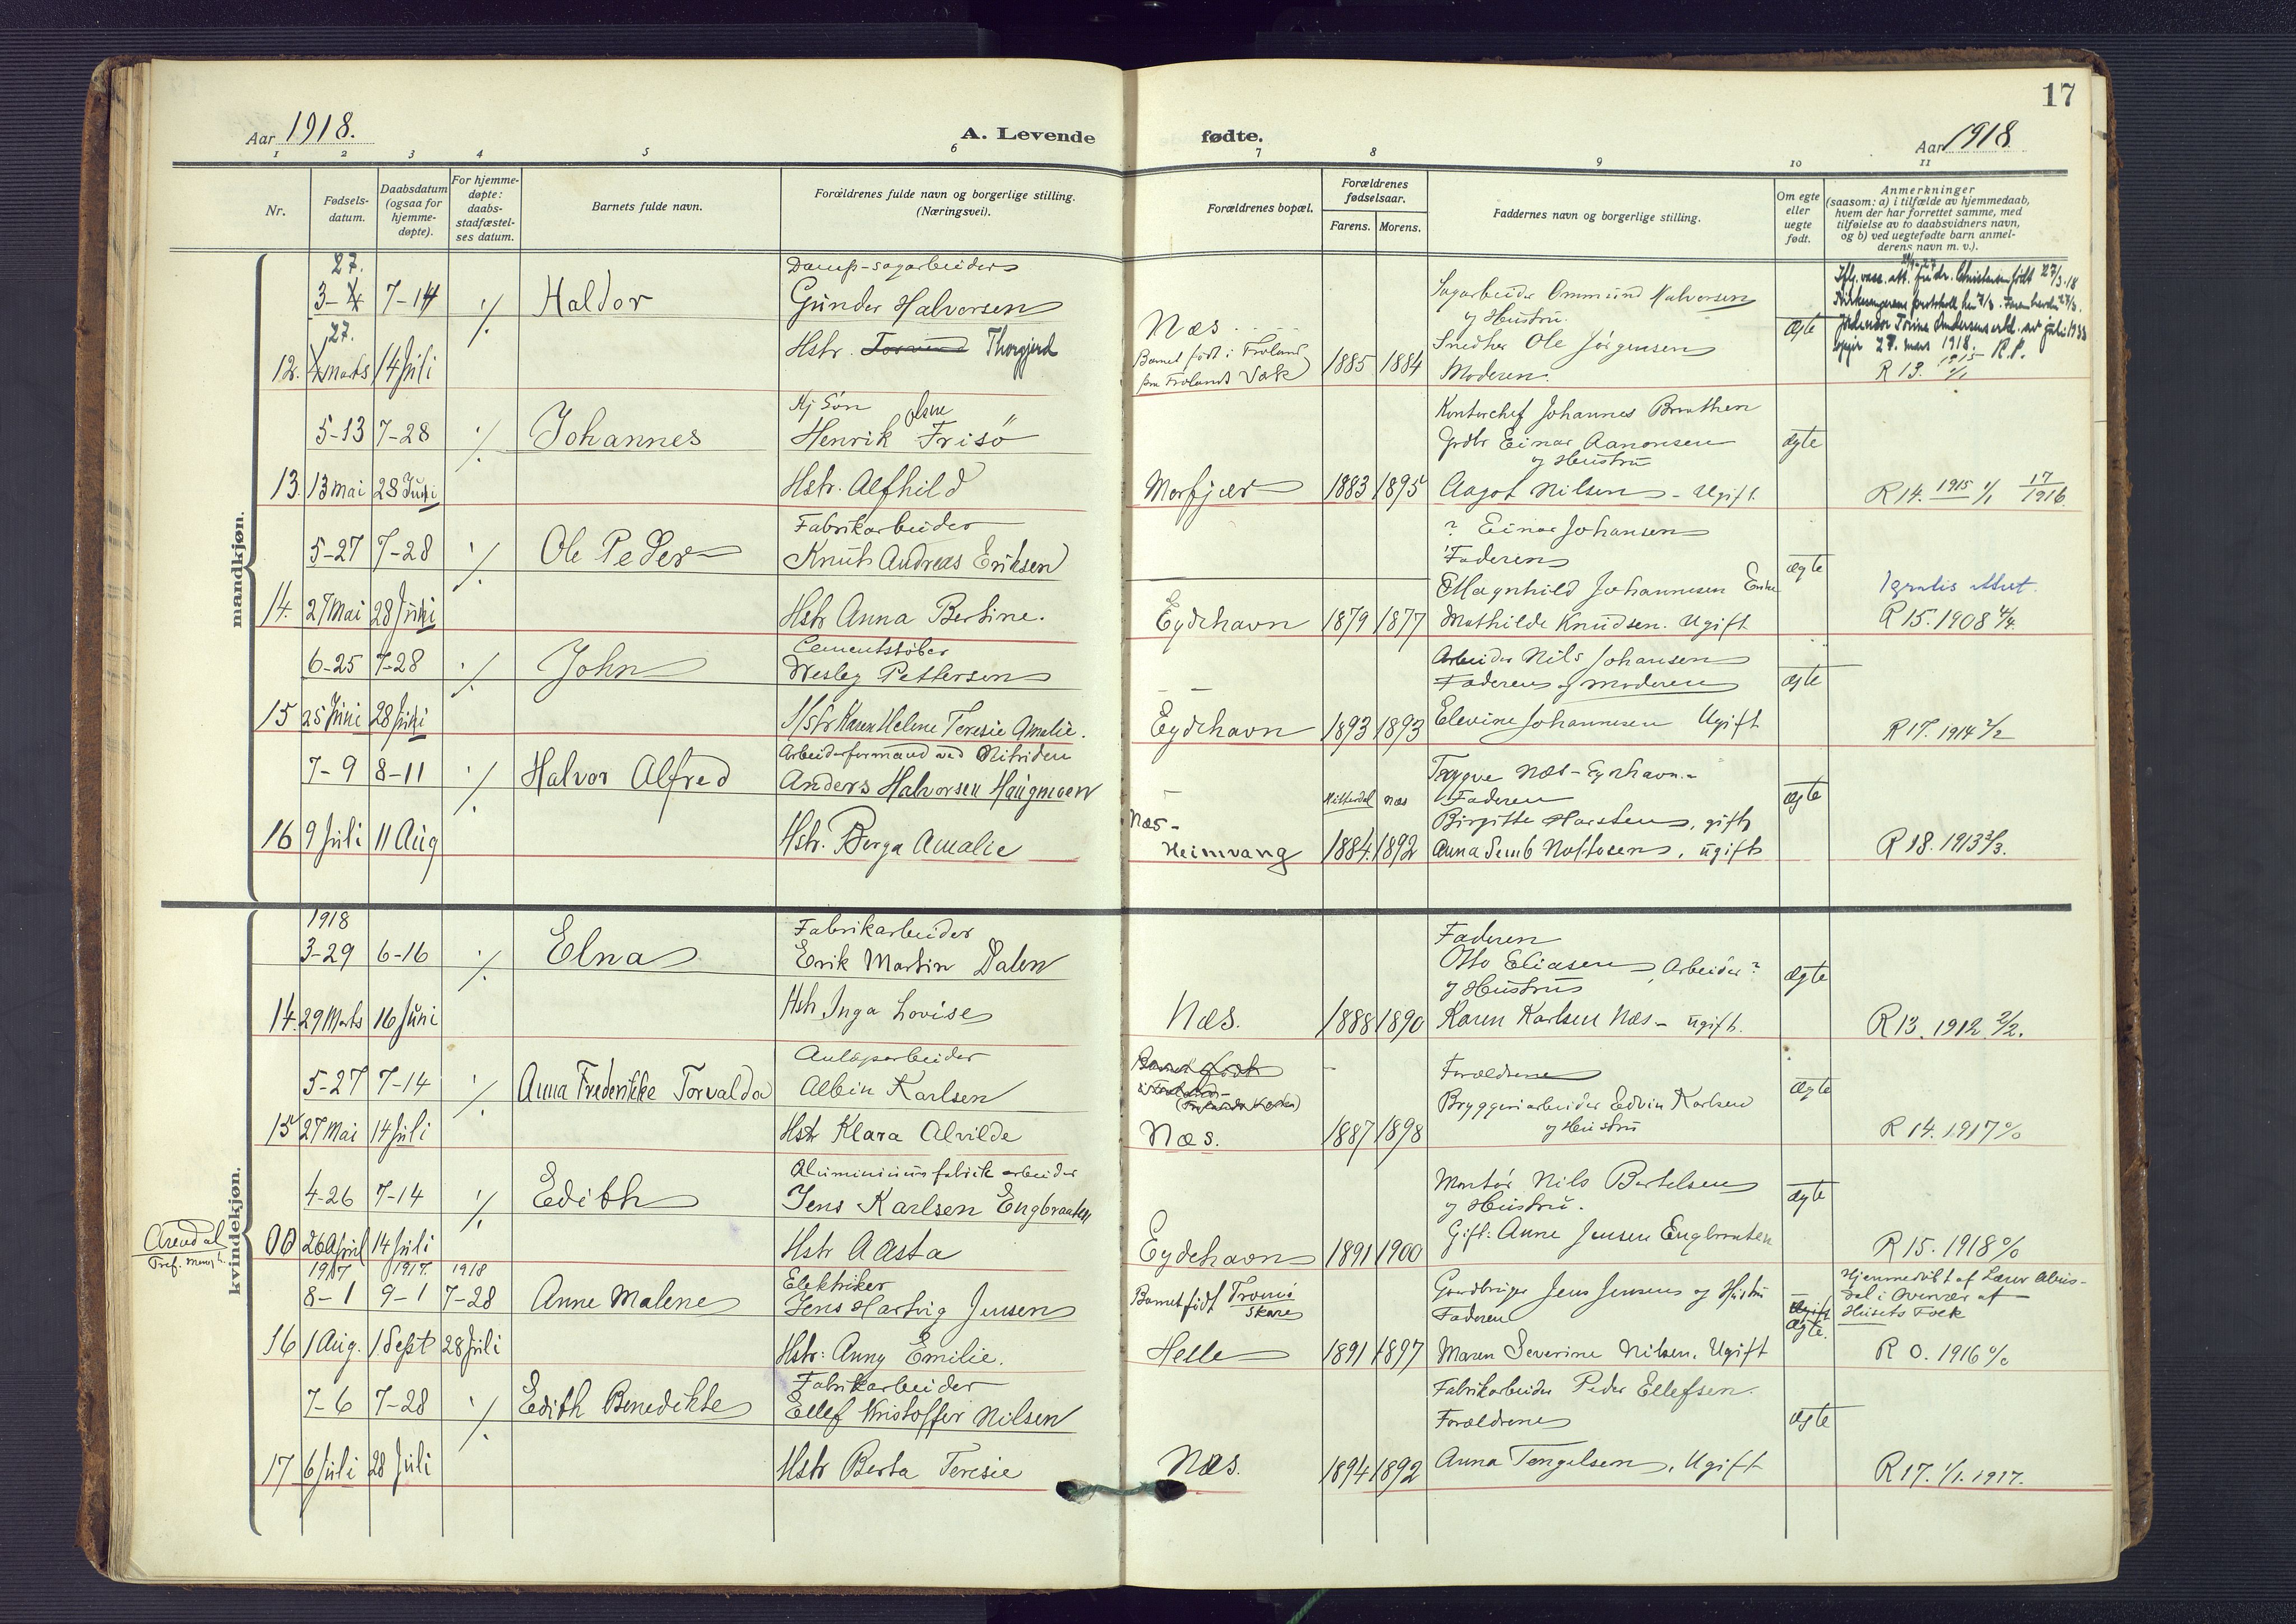 17
Aar 1918.
A. Levende
fødte.
Aar 1918
1 2 3 4 5 6 7 8 9 10 11
Nr.
Fødsels-
datum.
Daabsdatum
(ogsaa for
hjemme-
døpte).
For hjemme-
døpte:
daabs-
stadfæstel-
ses datum.
Barnets fulde navn.
Forældrenes fulde navn og borgerlige stilling.
(Næringsvei).
Forældrenes bopæl.
Forældrenes
fødselsaar.
Farens. Morens.
Faddernes navn og borgerlige stilling.
Om egte
eller
uegte
født.
Anmerkninger
(saasom: a) i tilfælde av hjemmedaab,
hvem der har forrettet samme, med
tilføielse av to daabsvidners navn,
og b) ved uegtefødte barn anmel-
derens navn m. v.).
mandkjøn.
27.
3-4 7-14 ·/. Haldor
Damp-sagarbeider
Gunder Halvorsen
27.
12. 4 Marts 14 Juli
Hstr. Torvend Thorgjerd
Næs
Barnet født i Froland
Frolands Væk
1885 1884
Sagarbeider Ommund Halvorsen
og Hustru.
Snedker Ole Jørgensen
Moderen.
Ægte
27. mars 1918. R.P.
R 13. 1915 1/1
5-13 7-28 ·/. Johannes
Kj Søn
Henrik Olsen Frisö
13. 13 Mai 28 Juli
Hstr. Alfhild
Morfjær 1883 1895
Kontorchef Johannes Bruthen
Grdbr Einar Aanonsen
og Hustru
Aagot Nilsen - Ugift
Ægte
R 14. 1915 1/1 17/1916.
5-27 7-28 ·/. Ole Peder
Fabrikarbeider
Knut Andreas Eriksen
14. 27 Mai 28 Juli
Hstr Anna Bertine.
Eydehavn 1879 1877
? Einar Johansen
Faderen
Magnhild Johannesen Enke
Mathilde Knudsen. Ugift
Ægte
1 gratis attest.
R 15. 1908 4/4.
6-25 7-28 ·/. John
Cementstøber
Wesley Pettersen
15 25 Juni 28 Juli
Hstr Karen Helene Teresie Amalie.
Eydehavn 1893 1893
Arbeider Nils Johansen
Faderen og Moderen
Elevine Johannesen Ugift
Ægte
R 17. 1914 2/2
7-9 8-11 ·/. Halvor Alfred
Arbeiderformand ved Nitriden
Anders Halvorsen Haugmoen
16 9 Juli 11 Aug
Hstr. Borga Amalie
Næs-
Heimvang
Hitterdal Næs
1884. 1892
Trygve Næs - Eydehavn.
Faderen
Birgitte Harstens, gift
Anna Semb Noftoen, ugift
Ægte
R 18. 1913 3/3.
kvindekjøn.
1918
3-29 6-16 ·/. Elna
Fabrikarbeider
Erik Martin Dalen
14. 29 Marts 16 Juni
Hstr Inga Lovise
Næs. 1888 1890
Faderen
Otto Eliasen, Arbeider?
og Hustru
Karen Karlsen Næs - ugift.
Ægte
R 13. 1912 2/2.
5-27 7-14 ·/. Anna Frederikke Torvalda
Anlægsarbeider
Albin Karlsen
15 27 Mai 14 Juli
Hstr Klara Alvilde
Barnet født
Næs. 1887 1898
Forældrene
Bryggeriarbeider Edvin Karlsen
og Hustru
Ægte
R 14. 1917 %
4-26 7-14 ·/. Edith
Aluminiumsfabrik arbeider
Jens Karlsen Engbraaten
Arendal
Tref. Menigh.
00 26 April 14 Juli
Hstr Aasta
Eydehavn 1891 1900
Montör Nils Bertelsen
og Hustru.
Gift: Anne Jensen Engbraaten
Ægte
R 15. 1918 %
1917 1917. 1918
8-1 9-1 7-28 Anne Malene
Elektriker
Jens Hartvig Jensen
16 1 Aug. 1 Sept 28 Juli
Hstr: Anny Emilie.
Barnet født Tromö
Skare
Helle 1891 1897
Gaardbruger Jens Jensen og Hustru
Faderen
Maren Severine Nilsen. Ugift
Ægte.
Hjemmedøbt af Lærer
dal i Overvær af
Husets Folk
R 0. 1916 %
7-6 7-28 ·/. Edith Benedikte
Fabrikarbeider
Ellef Kristoffer Nilsen
17 6 Juli 28 Juli
Hstr Berta Teresie
Næs. 1894 1892
Fabrikarbeider Peder Ellefsen.
Forældrene
Anna Tengelsen, Ugift
Ægte
R 17. 1/1. 1917.